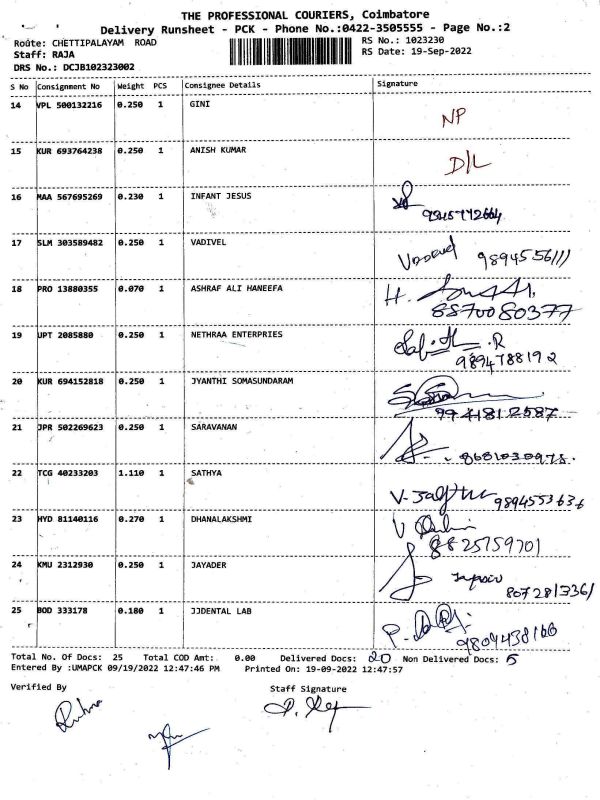 THE PROFESSIONAL COURIERS, Coimbatore
Delivery Runsheet - PCK - Phone No.:0422-3505555 - Page No.:2
Route: CHETTIPALAYAM ROAD RS No.: 1023230
Staff: RAJA RS Date: 19-Sep-2022
DRS No.: DCJB102323002
S No Consignment No Weight PCS Consignee Details Signature
14 VPL 500132216 0.250 1 GINI NP
15 KUR 693764238 0.250 1 ANISH KUMAR D/L
16 MAA 567695269 0.230 1 INFANT JESUS
17 SLM 303589482 0.250 1 VADIVEL
18 PRO 13880355 0.070 1 ASHRAF ALI HANEEFA 8870080377
19 UPT 2085880 0.250 1 NETHRAA ENTERPRIES 9894788192
20 KUR 694152818 0.250 1 JYANTHI SOMASUNDARAM 9941812587
21 JPR 502269623 0.250 1 SARAVANAN
22 TCG 40233203 1.110 1 SATHYA 9894553636
23 HYD 81140116 0.270 1 DHANALAKSHMI 8825759701
24 KMU 2312930 0.250 1 JAYADER
25 BOD 333178 0.180 1 JJDENTAL LAB
Total No. Of Docs: 25 Total COD Amt: 0.00 Delivered Docs: 20 Non Delivered Docs: 5
Entered By :UMAPCK 09/19/2022 12:47:46 PM Printed On: 19-09-2022 12:47:57
Verified By Staff Signature